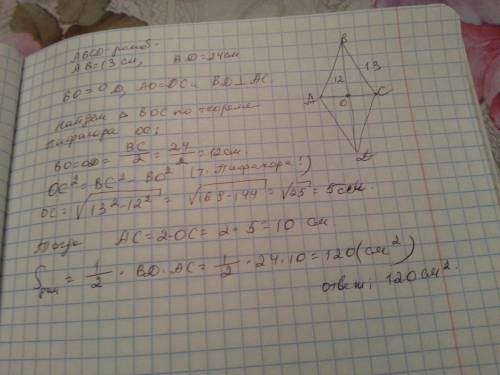 ABCD - ромб.
AB = 13 см, BD = 24 см
BO = OD, AO = OC и BD ⊥ AC
Найдем △ BOC по теореме
Пифагора OC:
BO = OD = BC/2 = 24/2 = 12 см.
OC² = BC² - BO² (т. Пифагора!)
OC = √(13² - 12²) = √(169 - 144) = √25 = 5 см.
Тогда AC = 2·OC = 2·5 = 10 см
S = 1/2 · BD · AC = 1/2 · 24 · 10 = 120 (см²)
ответ: 120 см².
B
12
13
A
O
C
D